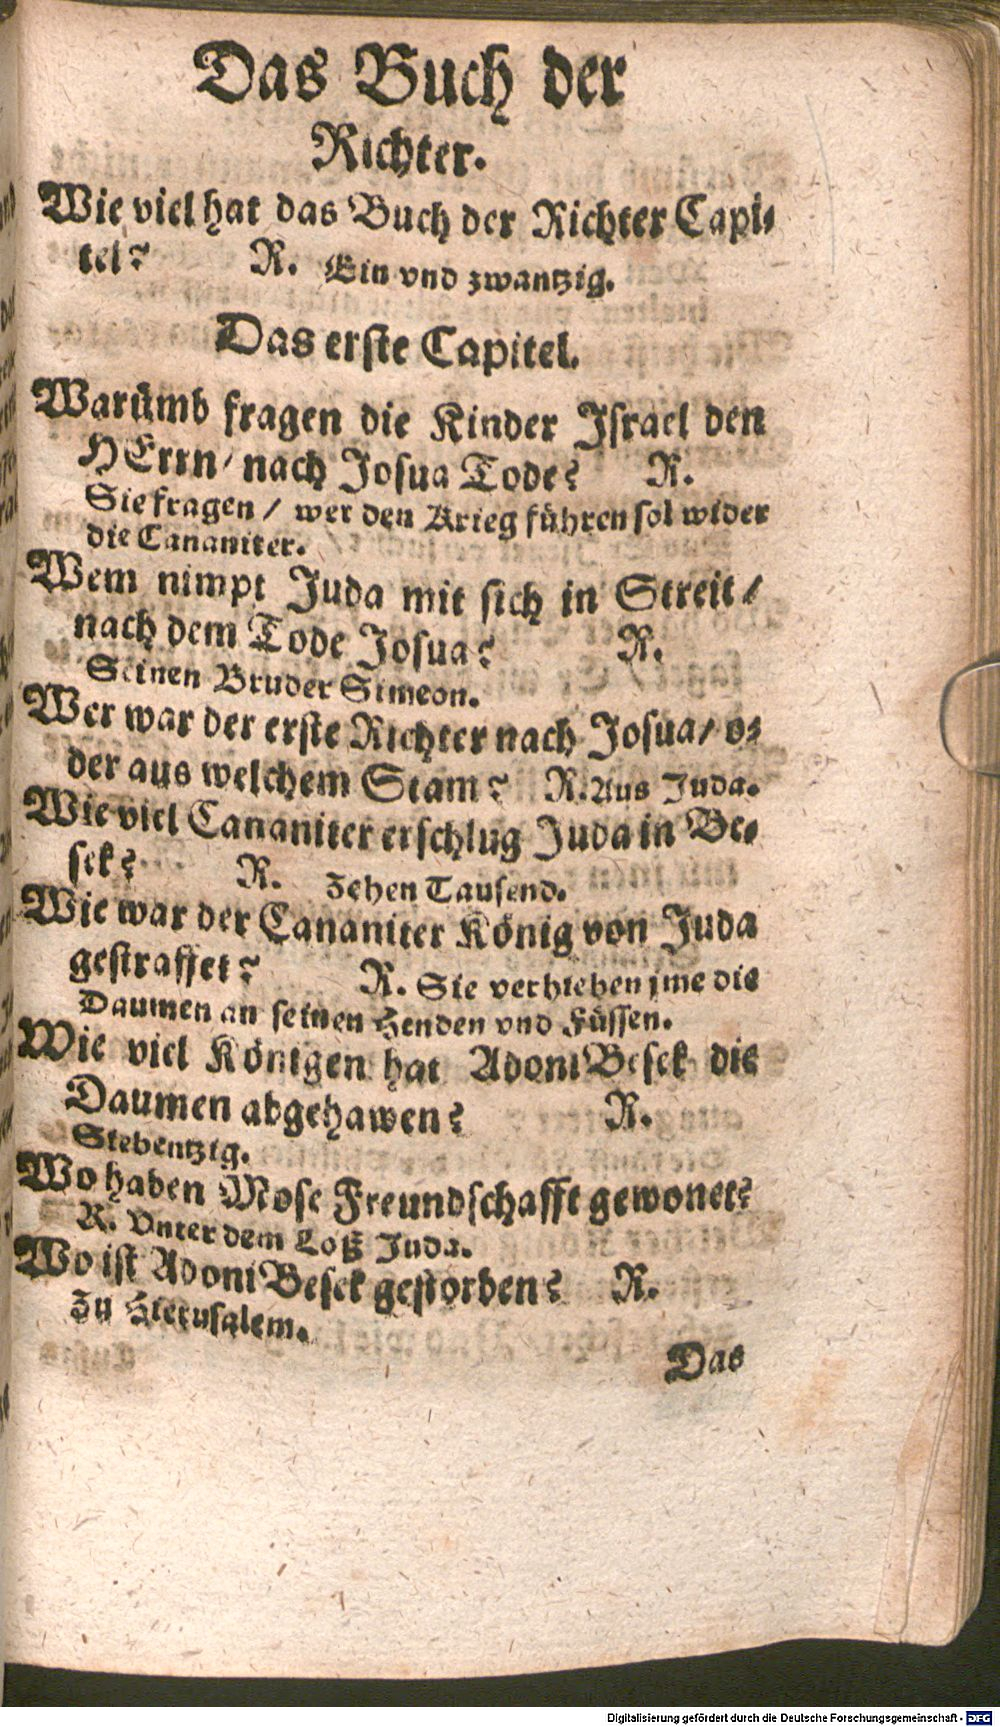 Das Buch der
Richter.
Wie viel hat das Buch der Richter Capi-
tel? R. Ein vnd zwantzig.
Das erste Capitel.
Warümb fragen die Kinder Israel den
HErrn/ nach Josua Tode? R.
Sie fragen / wer den Krieg führen sol wider
die Cananiter.
Wem nimpt Juda mit sich in Streit/
nach dem Tode Josua? R.
Seinen Bruder Simeon.
Wer war der erste Richter nach Josua/ o-
der aus welchem Stam? R. Aus Juda.
Wie viel Cananiter erschlug Juda in Be-
sek? R. Zehen Tausend.
Wie war der Cananiter König von Juda
gestraffet? R. Sie verhieben jme die
Daumen an seinen Henden vnd Füssen.
Wie viel Königen hat AdoniBesek die
Daumen abgehawen? R.
Siebentzig.
Wo haben Mose Freundschafft gewonet?
R. Vnter dem Loß Juda.
Wo ist AdoniBesek gestorben? R.
Zu Hierusalem.
Das
Digitalisierung gefördert durch die Deutsche Forschungsgemeinschaft - DFG